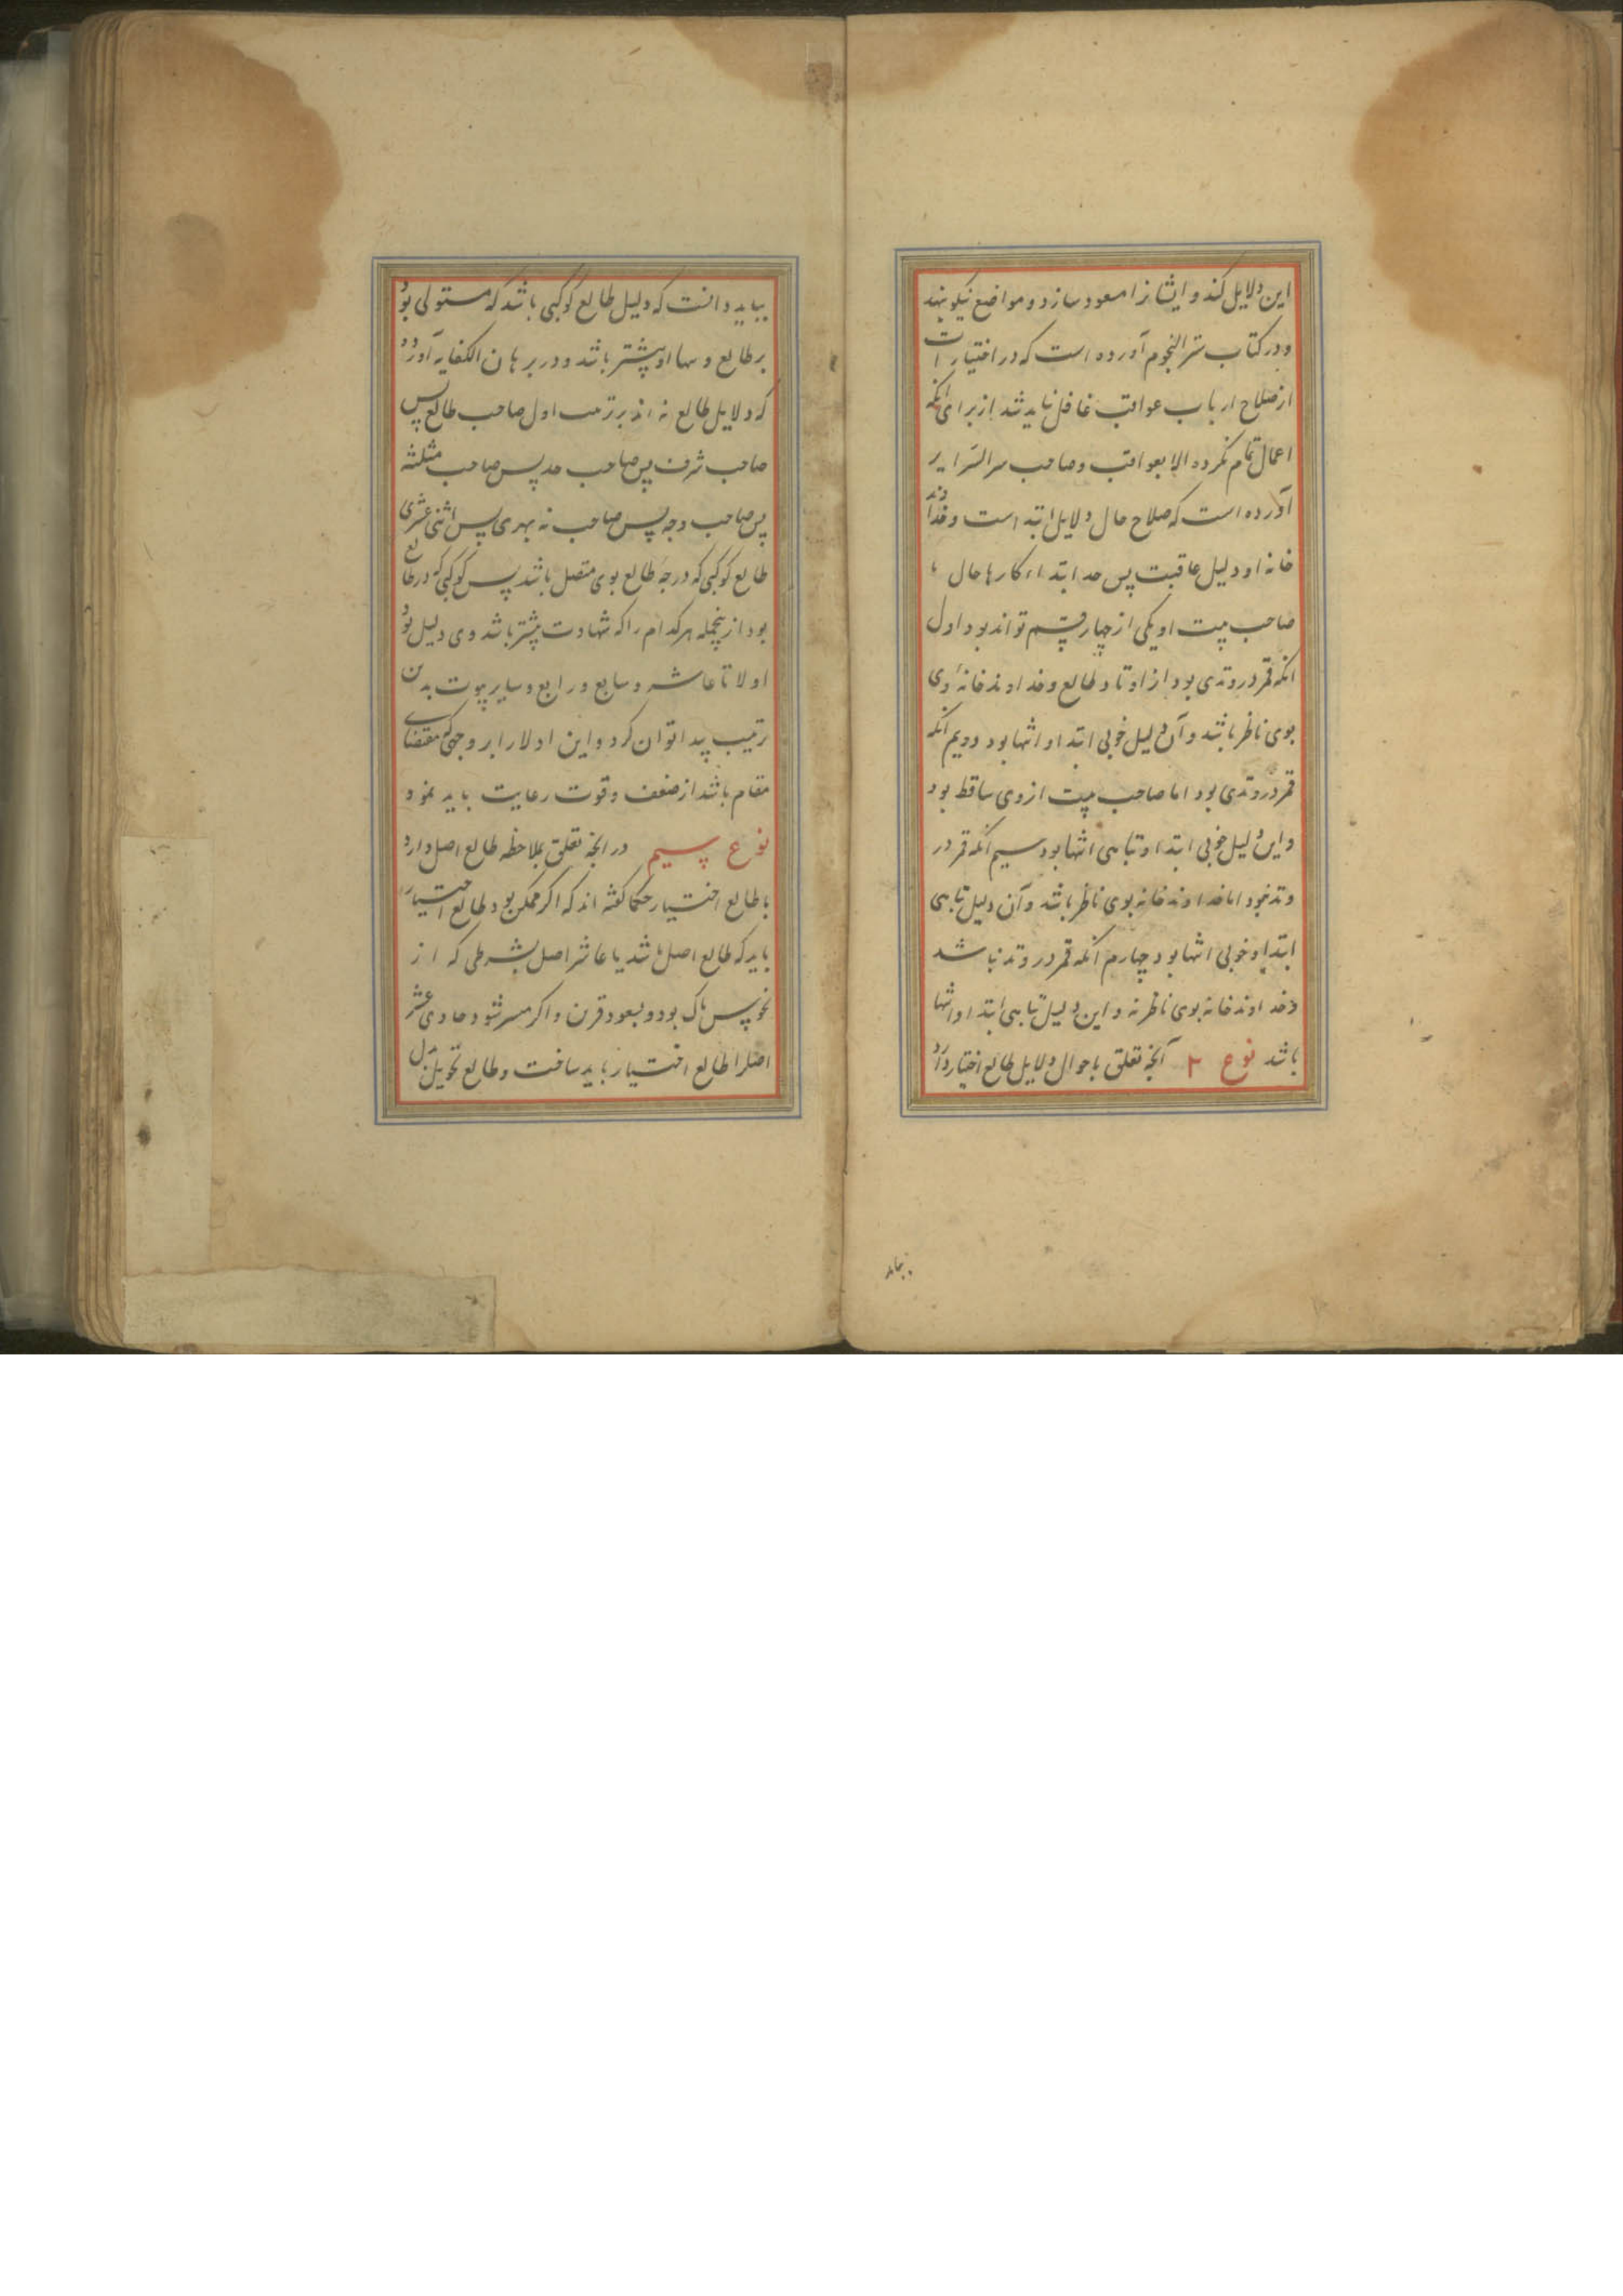 این دلایل کند و ایشانرا مسعود سازد و مواضع نیکو نهد
و در کتاب سر النجوم آورده است که در اختیارات
از صلاح ارباب عواقب غافل نباید شد از برای انکه
اعمال تمام نگردد الا بعواقب و صاحب سر السرایر
آورده است که صلاح حال دلایل ابتد است و خداوند
خانه او دلیل عاقبت پس حد ابتداء کارها حال
صاحب بیت او یکی از چهار قسم تواند بود اول
انکه قمر در وتدی بود از اوتاد طالع و خداوند خانهٔ وی
بوی ناظر باشد و آن دلیل خوبی ابتدا و انتها بود دویم انکه
قمر در وتدی بود اما صاحب بیت از وی ساقط بود
و این دلیل خوبی ابتدا و تباهی انتها بود سیم انکه قمر در
وتد نبود اما خداوند خانه بوی ناظر باشد و آن دلیل تباهی
ابتدا و خوبی انتها بود چهارم انکه قمر در وتد نباشد
و خداوند خانه بوی ناظر نه و این دلیل تباهی ابتدا و انتها
باشد نوع ۲ آنچه تعلق باحوال دلایل طالع اختیار دارد
بباید
بباید دانست که دلیل طالع کوکبی باشد که مستولی بود
بر طالع و سها او بیشتر باشد و در برهان الکفایه آورده
که دلایل طالع نه اند برترتیب اول صاحب طالع پس
صاحب شرف پس صاحب حد پس صاحب مثلثه
پس صاحب وجه پس صاحب نه بهری پس اثنی عشری
طالع کوکبی که درجهٔ طالع بوی متصل باشد پس کوکبی که در طالع
بود از ینجمله هرکدام را که شهادت بیشتر باشد وی دلیل بود
اولا تا عاشر و سابع و رابع و سایر بیوت بدین
ترتیب پیدا توان کرد و این اولا را بر وجهی که مقتضای
مقام باشد از ضعف و قوت رعایت باید نمود
نوع سیم در انچه تعلق بملاحظه طالع اصل دارد
با طالع اختیار حکما گفته اند که اگر ممکن بود طالع اختیار را
باید که طالع اصل باشد یا عاشر اصل بشرطی که از
نحوس پاک بود و بسعود قرین و اگر میسر نشود حادی عشر
اصل را طالع اختیار باید ساخت و طالع تحویل